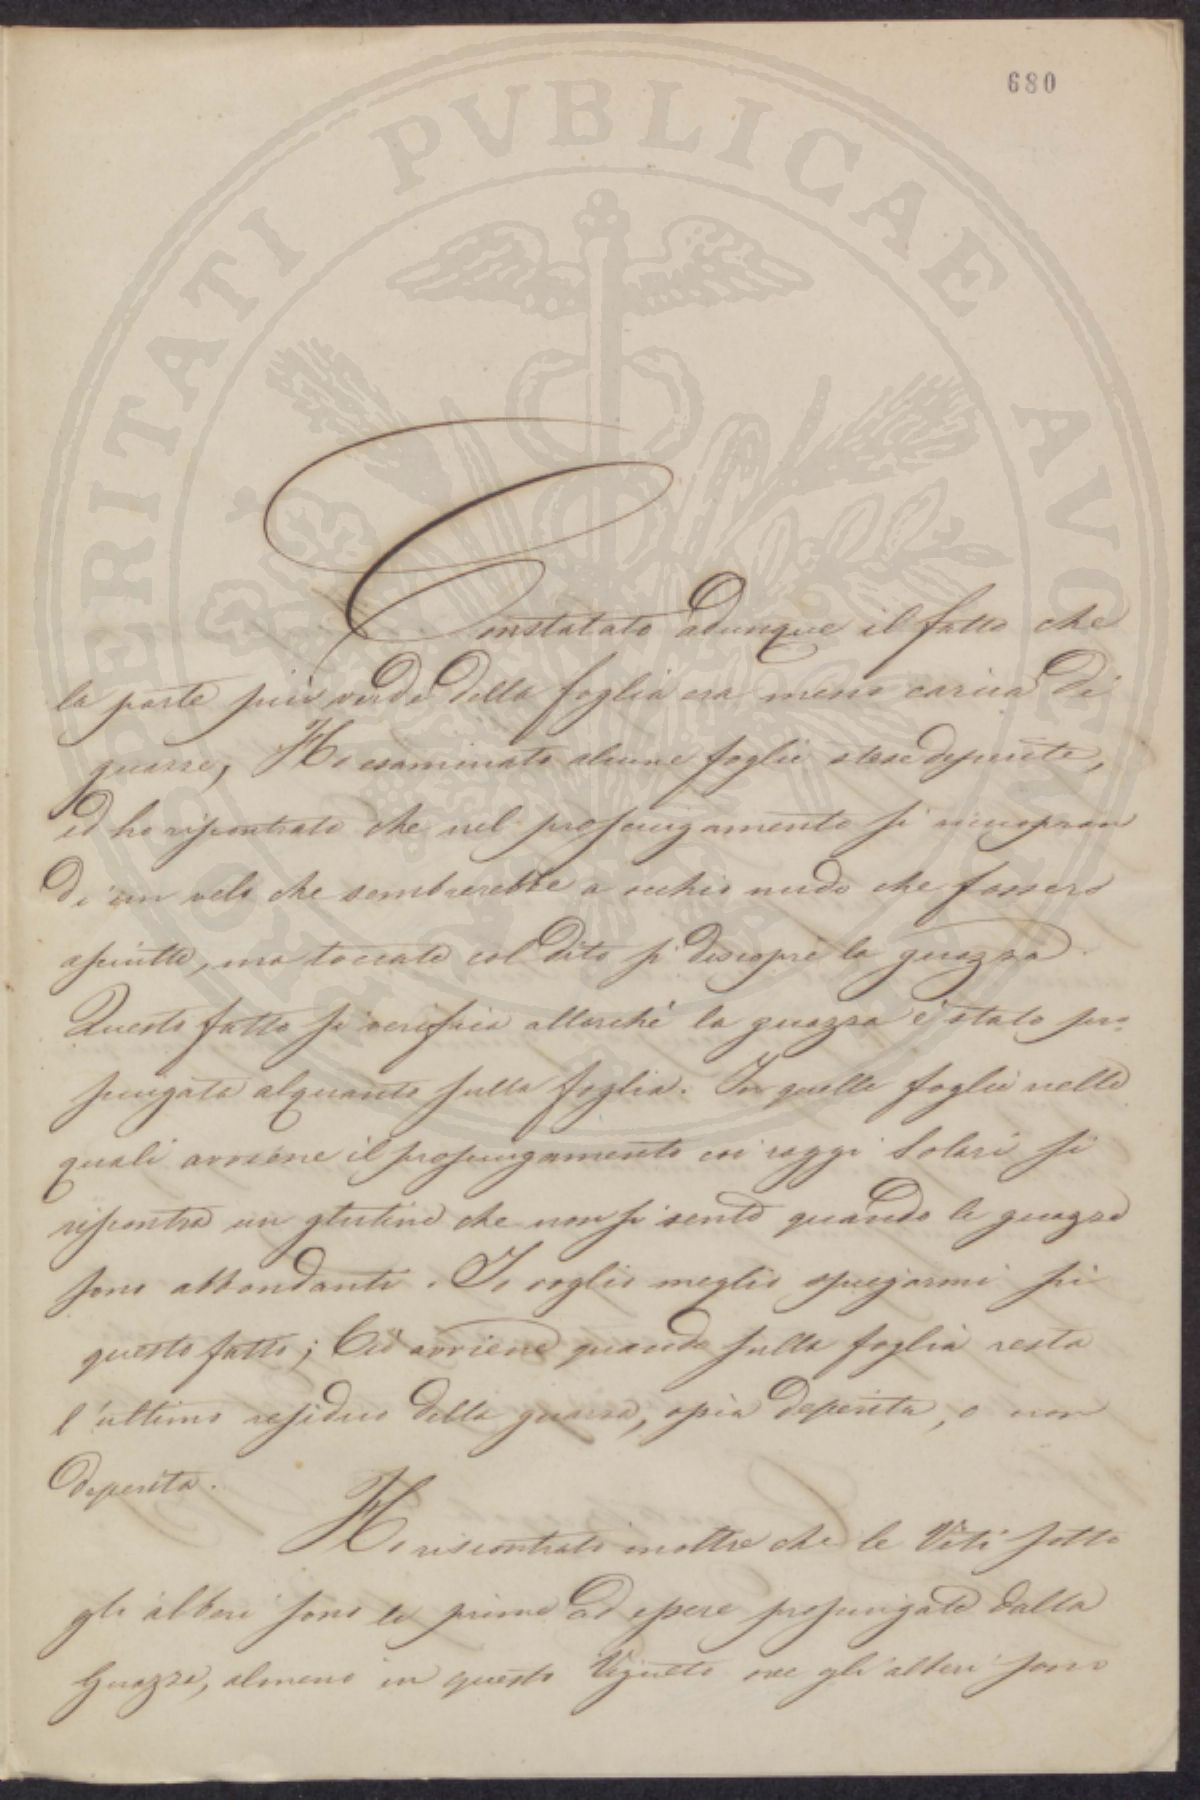 680
PROSPERITATI PVBLICAE AVGENDAE
Constatato adunque il fatto che
la parte più verde della foglia era meno carica di
guazze, Ho esaminato alcune foglie stese deperite,
ed ho riscontrato che nel prosciugamento si ricoprон
di un velo che sembrerebbe a occhio nudo che fossero
asciutte, ma toccate col dito si discopre la guazza.
Questo fatto si verifica allorché la guazza è stata pro-
sciugata alquanto sulla foglia. In quelle foglie nelle
quali avviene il prosciugamento coi raggi Solari si
riscontra un glutine che non si sente quando le guazze
sono abbondanti. Io voglio meglio spiegarmi su
questo fatto; Ciò avviene quando sulla foglia resta
l'ultimo residuo della guazza, ossia deperita, o non
deperita.
Ho riscontrato inoltre che le Viti sotto
gli alberi sono le prime ad essere prosciugate dalla
guazza, almeno in questo Vigneto ove gli alberi sono